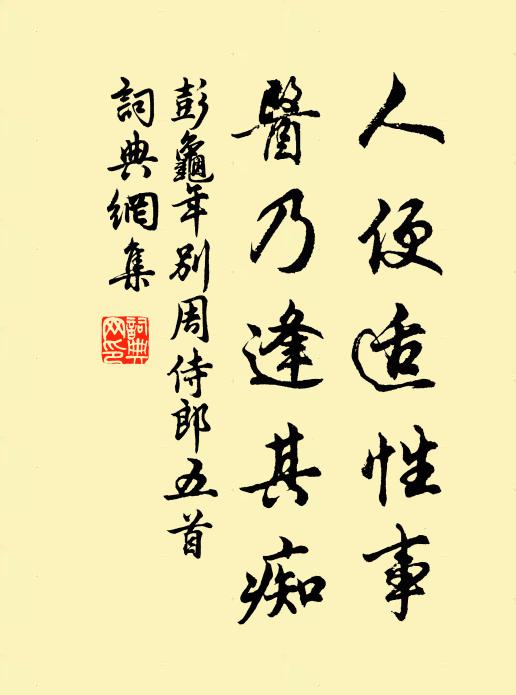 人便适性事
醫乃逢其痴
彭龜年別周侍郎五首
詞典網集
詞典
网印